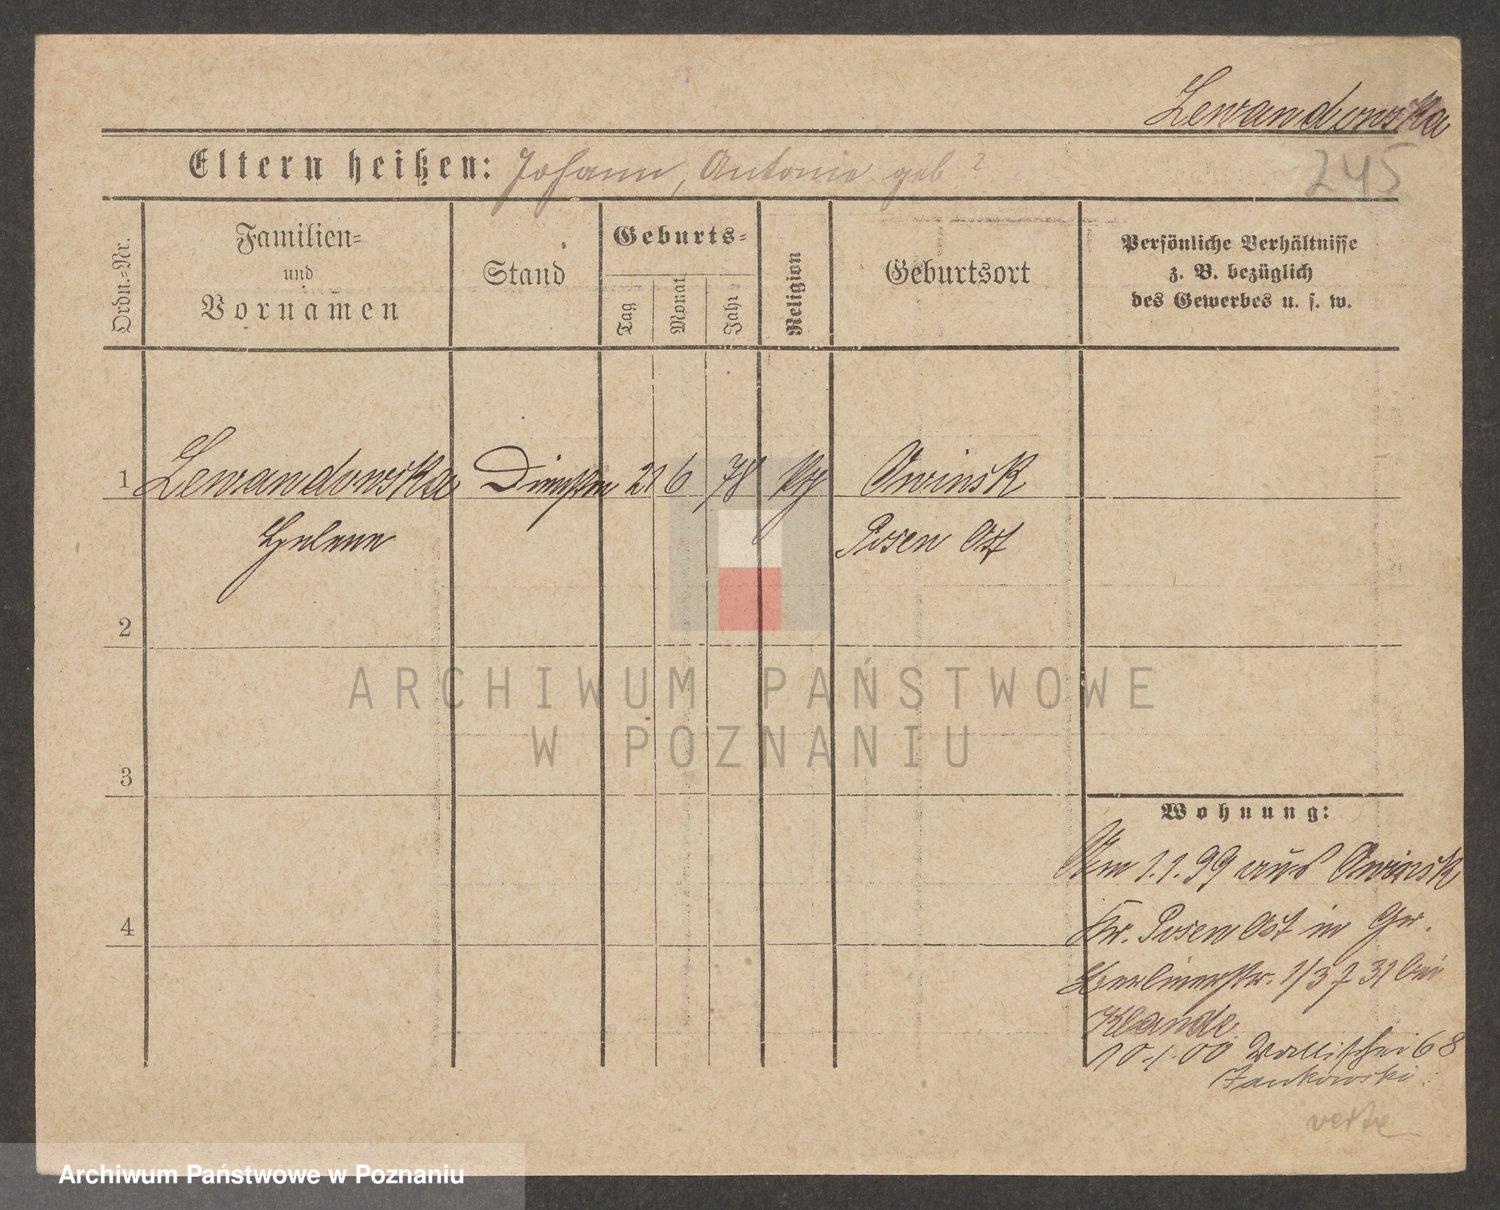 Lewandowska
245
Eltern heißen: Johann, Antonie geb ?
Ordn.-Nr.
Familien-
und
Vornamen
Stand
Geburts-
Tag
Monat
Jahr
Religion
Geburtsort
Persönliche Verhältnisse
z. B. bezüglich
des Gewerbes u. s. w.
1 Lewandowska 21 6 78 Owinsk
Helene Posen Ost
2
3
4
Wohnung:
Am 1.1.99 aus Owinsk
Kr. Posen Ost in Gw.
Berlinerstr. 1/3 31 bei
10.1.00 Wallischei 68
Jankowski
ARCHIWUM PAŃSTWOWE
W POZNANIU
Archiwum Państwowe w Poznaniu